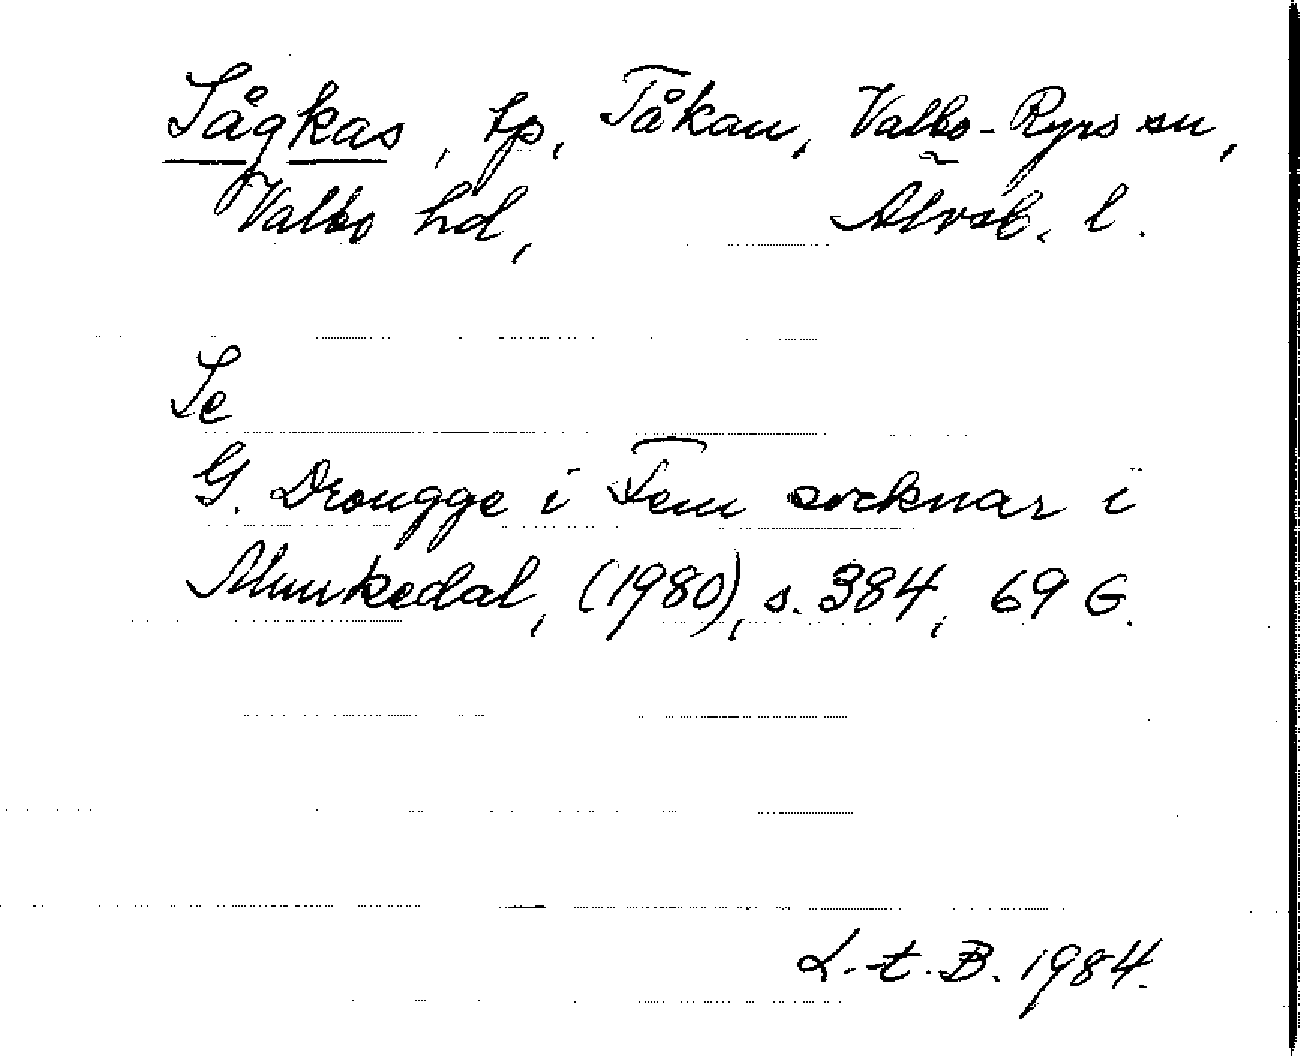 Sågkas, tp, Tåkan, Valbo-Ryrs sn,
Valbo hd, Älvsb. l.
Se
G. Drougge i Fem socknar i
Munkedal, (1980), s. 384, 69 G.
L. t. B. 1984.